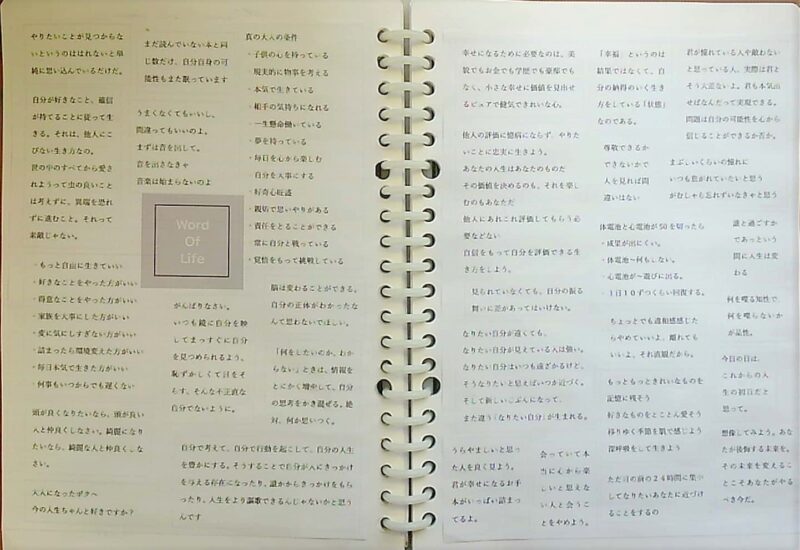 やりたいことが見つからな
いというのははれないと単
純に思い込んでいるだけだ。
自分が好きなこと、確信
が持てることに従って生
きる。それは、他人にこ
びない生き方なの。
世の中のすべてから愛さ
れようって虫の良いこと
は考えずに、異端を恐れ
ずに進むこと。それって
素敵じゃない。
・もっと自由に生きていい
・好きなことをやった方がいい
・得意なことをやった方がいい
・家族を大事にした方がいい
・変に気にしすぎない方がいい
・詰まったら環境変えた方がいい
・毎日本気で生きた方がいい
・何事もいつからでも遅くない
頭が良くなりたいなら、頭が良い
人と仲良くしなさい。綺麗になり
たいなら、綺麗な人と仲良くしな
さい。
大人になったボクへ
今の人生ちゃんと好きですか?
まだ読んでいない本と同
じ数だけ、自分自身の可
能性もまた眠っています
うまくなくてもいいし、
間違ってもいいのよ。
まずは音を出して。
音を出さなきゃ
音楽は始まらないのよ
Word
Of
Life
がんばりなさい。
いつも鏡に自分を映
してまっすぐに自分
を見つめられるよう、
恥ずかしくて目をそ
らす、そんな不正直な
自分でないように。
真の大人の条件
・子供の心を持っている
現実的に物事を考える
・本気で生きている
・相手の気持ちになれる
・一生懸命働いている
・夢を持っている
・毎日を心から楽しむ
・自分を大事にする
・好奇心旺盛
・親切で思いやりがある
・責任をとることができる
常に自分と戦っている
・覚悟をもって挑戦している
脳は変わることができる。
自分の正体がわかったな
んて思わないでほしい。
「何をしたいのか、わか
らない」ときは、情報を
とにかく増やして、自分
の思考をかき混ぜる。絶
対、何か思いつく。
自分で考えて、自分で行動を起こして、自分の人生
を豊かにする。そうすることで自分が人にきっかけ
を与える存在になったり、誰かからきっかけをもら
ったり、人生をより謳歌できるんじゃないかと思う
んです
幸せになるために必要なのは、美
貌でもお金でも学歴でも豪邸でも
なく、小さな幸せに価値を見出せ
るピュアで健気できれいな心。
他人の評価に憶病にならず、やりた
いことに忠実に生きよう。
あなたの人生はあなたのものだ
その価値を決めるのも、それを楽し
むのもあなただ
他人にあれこれ評価してもらう必
要などない
自信をもって自分を評価できる生
き方をしよう。
見られていなくても、自分の振る
舞いに差があってはいけない。
なりたい自分が遠くても、
なりたい自分が見えている人は強い。
なりたい自分はいつも遠ざかるけど、
そうなりたいと思えばいつか近づく。
そして新しいじぶんになって、
また違う「なりたい自分」が生まれる。
うらやましいと思っ
た人を良く見よう。
君が幸せになるお手
本がいっぱい詰まっ
てるよ。
会っていて本
当に心から楽
しいと思えな
い人と会うこ
とをやめよう。
「幸福」というのは
結果ではなくて、自
分の納得のいく生き
方をしている「状態」
なのである。
尊敬できるか
できないかで
人を見れば間
違いはない
体電池と心電池が50を切ったら
・成果が出にくい。
・体電池~何もしない。
・心電池が~遊びに出る。
・1日10ずつくらい回復する。
ちょっとでも違和感感じた
らやめていいよ、離れても
いいよ、それ直観だから。
もっともっときれいなものを
記憶に残そう
好きなものをとことん愛そう
移りゆく季節を肌で感じよう
深呼吸をして生きよう
ただ目の前の24時間に集中
してなりたいあなたに近づけ
ることをするの
君が憧れている人や敵わない
と思っている人、実際は君と
そう大差ないよ。君も本気出
せばなんだって実現できる。
問題は自分の可能性を心から
信じることができるか否か。
まぶしいくらいの憧れに
いつも焦がれていたいと思う
がむしゃら忘れずいなきゃと思う
誰と過ごすか
であっという
間に人生は変
わる
何を喋る知性で、
何を喋らないか
が品性。
今日の日は、
これからの人
生の初日だと
思って。
想像してみよう。あな
たが後悔する未来を。
その未来を変えるこ
とこそあなたがやる
べき今だ。